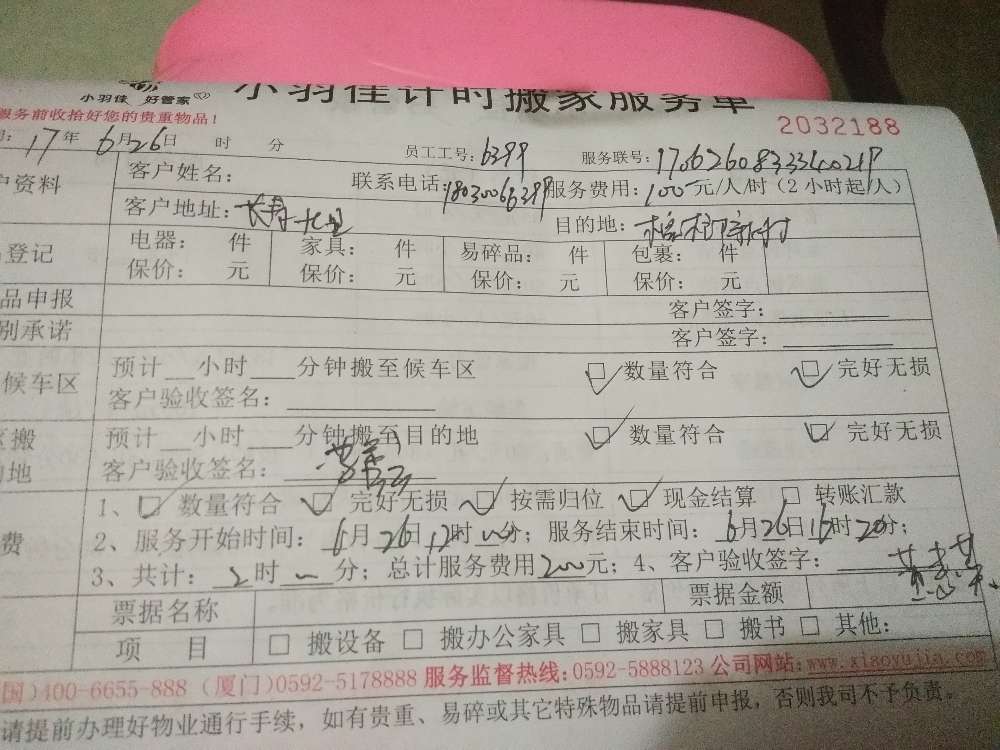 小羽佳 好管家 小羽佳计时搬家服务单
服务前收拾好您的贵重物品!
2032188
17年6月26日 时 分 员工工号:6399 服务联号:
户资料 客户姓名: 联系电话: 服务费用:100元/人/时(2小时起/人)
客户地址:长青 目的地:
登记 电器: 件 家具: 件 易碎品: 件 包裹: 件
保价: 元 保价: 元 保价: 元 保价: 元
品申报 客户签字:
别承诺 客户签字:
候车区 预计 小时 分钟搬至候车区 数量符合 完好无损
客户验收签名:
搬 预计 小时 分钟搬至目的地 数量符合 完好无损
的地 客户验收签名:
1、 数量符合 完好无损 按需归位 现金结算 转账汇款
费 2、服务开始时间:6月26日 时 分;服务结束时间:6月26日 时20分;
3、共计:2时 分;总计服务费用200元;4、客户验收签字:
票据名称 票据金额
项 目 □ 搬设备 □ 搬办公家具 □ 搬家具 □ 搬书 □ 其他:
国)400-6655-888 (厦门)0592-5178888 服务监督热线:0592-5888123 公司网站:www.xiaoyujia.com
请提前办理好物业通行手续,如有贵重、易碎或其它特殊物品请提前申报,否则我司不予负责。